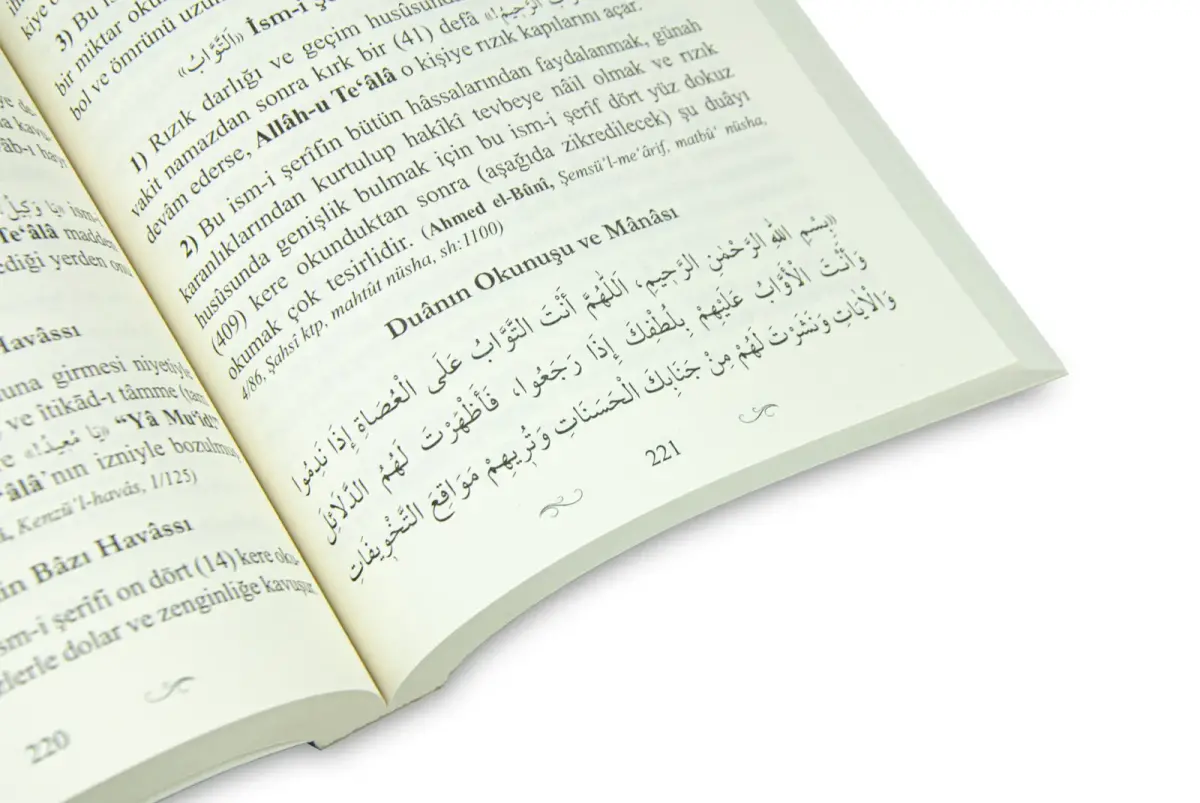 ye de
a kavu-
âb-ı hay
«يَا وَكِيلُ ism-i
Te‘âlâ madden
ediği yerden onu
Havâssı
una girmesi niyetiyle
ve îtikâd-ı tâmme (tam
«يَا مُعِيدُ!» “Yâ Mu‘îd!”
‘âlâ’nın izniyle bozulmuş
k, Kenzü’l-havâs, 1/125)
in Bâzı Havâssı
sm-i şerîfi on dört (14) kere oku-
zlerle dolar ve zenginliğe kavuşur
220
3) Bu
bir miktar oku
bol ve ömrünü uzun
«اَلتَّوَّابُ» İsm-i
1) Rızık darlığı ve geçim husûsunda
vakit namazdan sonra kırk bir (41) defâ الرَّحِيمُ!»
devâm ederse, Allâh-u Te‘âlâ o kişiye rızık kapılarını açar.
2) Bu ism-i şerîfin bütün hâssalarından faydalanmak, günah
karanlıklarından kurtulup hakîkî tevbeye nâil olmak ve rızık
husûsunda genişlik bulmak için bu ism-i şerîf dört yüz dokuz
(409) kere okunduktan sonra (aşağıda zikredilecek) şu duâyı
okumak çok tesirlidir. (Ahmed el-Bûnî, Şemsü’l-me‘ârif, matbû‘ nüsha,
4/86, Şahsî ktp, mahtût nüsha, sh:1100)
Duânın Okunuşu ve Mânâsı
«بِسْمِ اللهِ الرَّحْمٰنِ الرَّحِيمِ، اَللّٰهُمَّ أَنْتَ التَّوَّابُ عَلَى الْعُصَاةِ إِذَا نَدِمُوا
وَأَنْتَ الْأَوَّابُ عَلَيْهِمْ بِلُطْفِكَ إِذَا رَجَعُوا، فَأَظْهَرْتَ لَهُمُ الدَّلَائِلَ
وَالْاٰيَاتِ وَنَشَرْتَ لَهُمْ مِنْ جَنَابِكَ الْحَسَنَاتِ وَتُرِيهِمْ مَوَاقِعَ التَّخْوِيفَاتِ
221